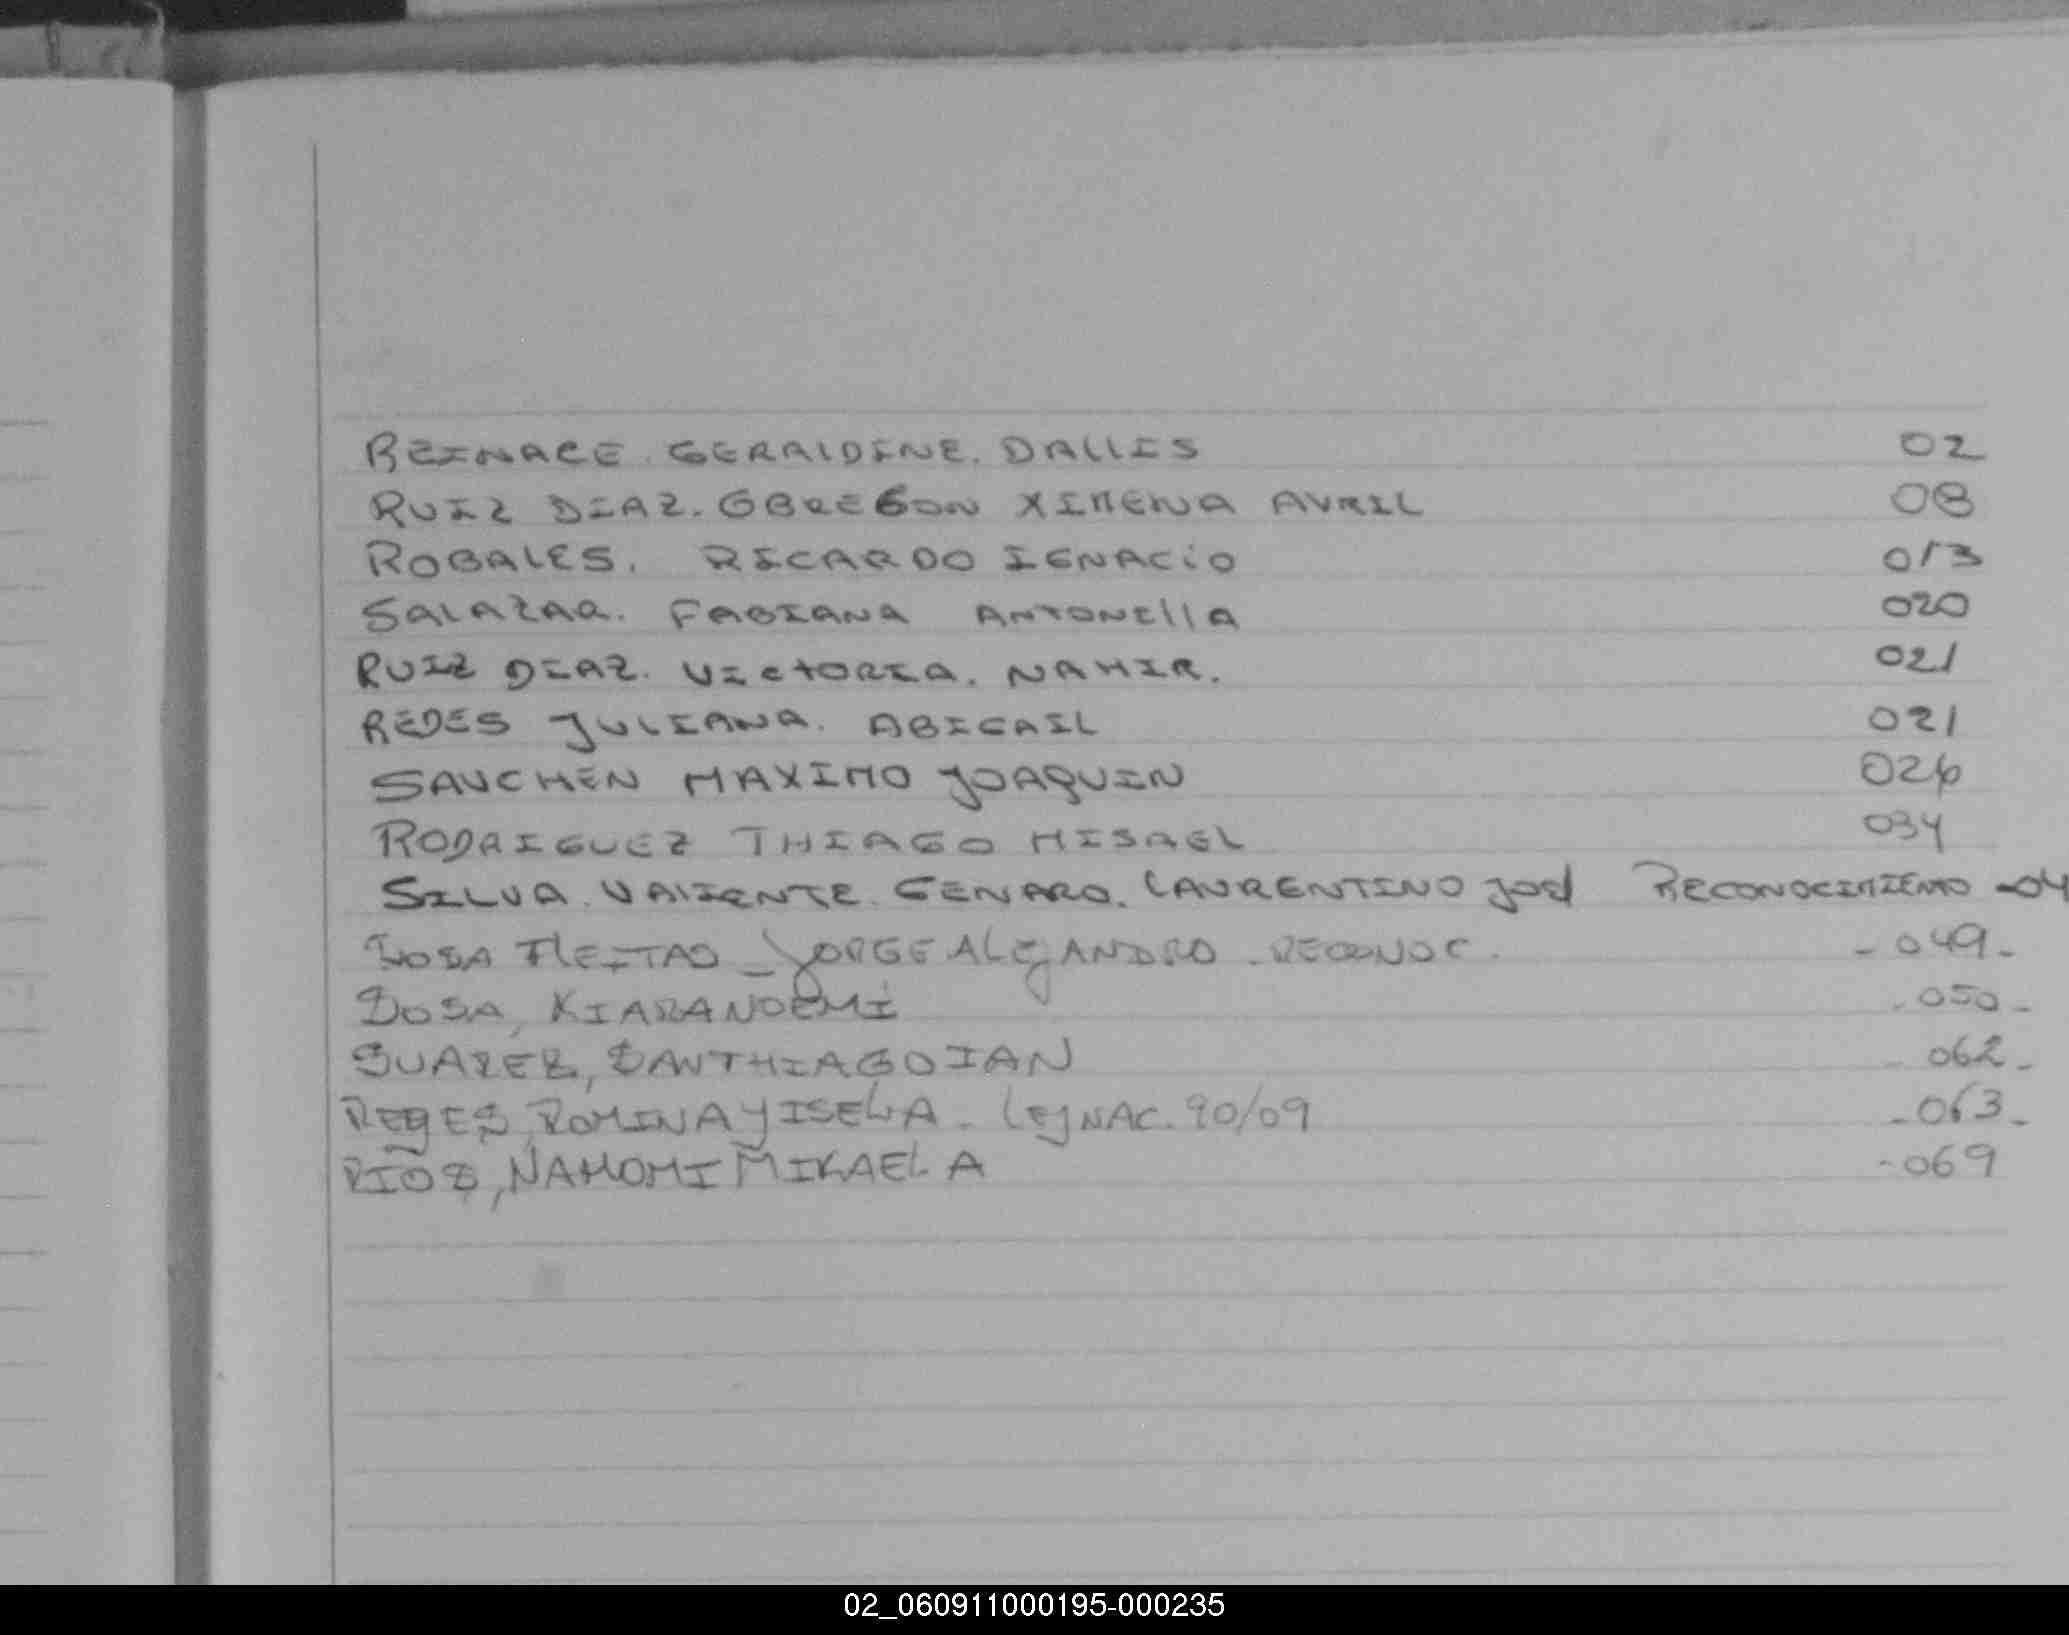 REINARE. GERALDINE. DALLIS 02
RUIZ DIAZ. OBREGON XIMENA AVRIL 08
ROBALES. RICARDO IGNACIO 013
SALAZAR. FABIANA ANTONELLA 020
RUIZ DIAZ. VICTORIA. NAHIR. 021
REDES JULIANA. ABIGAIL 021
SAUCHEN MAXIMO JOAQUIN 026
RODRIGUEZ THIAGO MISAEL 034
SILVA. VALIENTE. GENARO. LAURENTINO JOEL RECONOCIMIENTO -04
SOSA FLEITAS _ JORGE ALEJANDRO. RECONOC. - 049 -
SOSA, KIARA NOEMÍ - 050 -
SUAREZ, SANTHIAGO IAN - 062 -
REYES, ROMINA YISELA - LEJ NAC. 90/09 - 063 -
RIOS, NAHOMI MIKAELA - 069
02_060911000195-000235